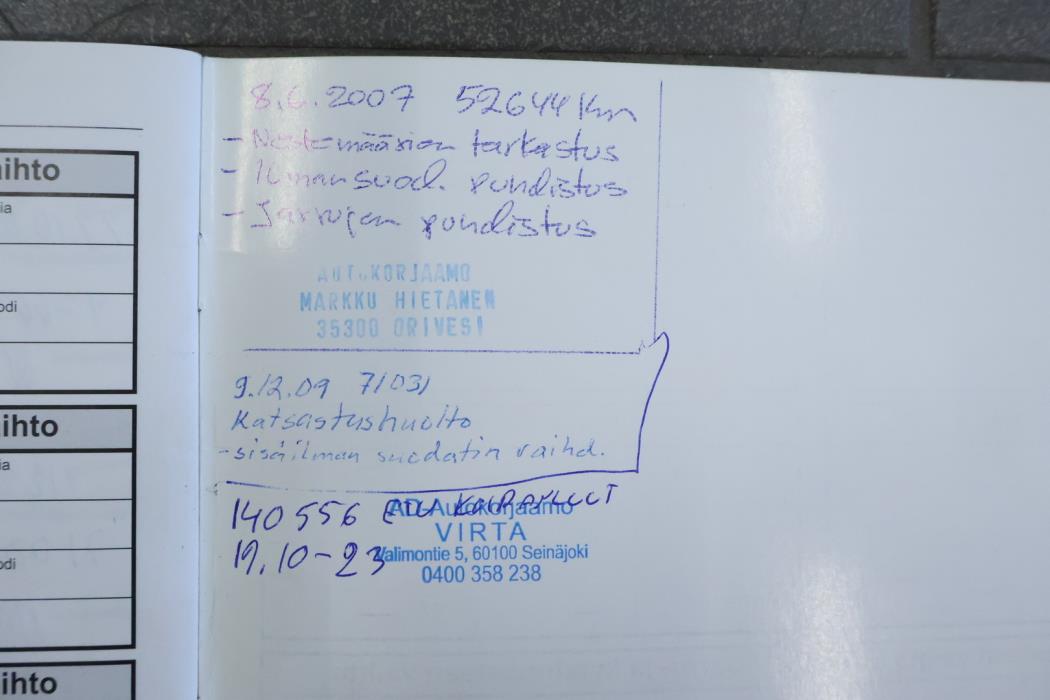 aihto
ia
odi
ihto
ia
odi
ihto
8.6.2007 52644 km
- Nestemäärien tarkastus
- Ilmansuod. puhdistus
- Jarrujen puhdistus
AUTOKORJAAMO
MARKKU HIETANEN
35300 ORIVESI
9.12.09 71031
Katsastushuolto
- sisäilman suodatin vaihd.
140556 ETU
AD-Autokorjaamo
VIRTA
19.10-23
Valimontie 5, 60100 Seinäjoki
0400 358 238